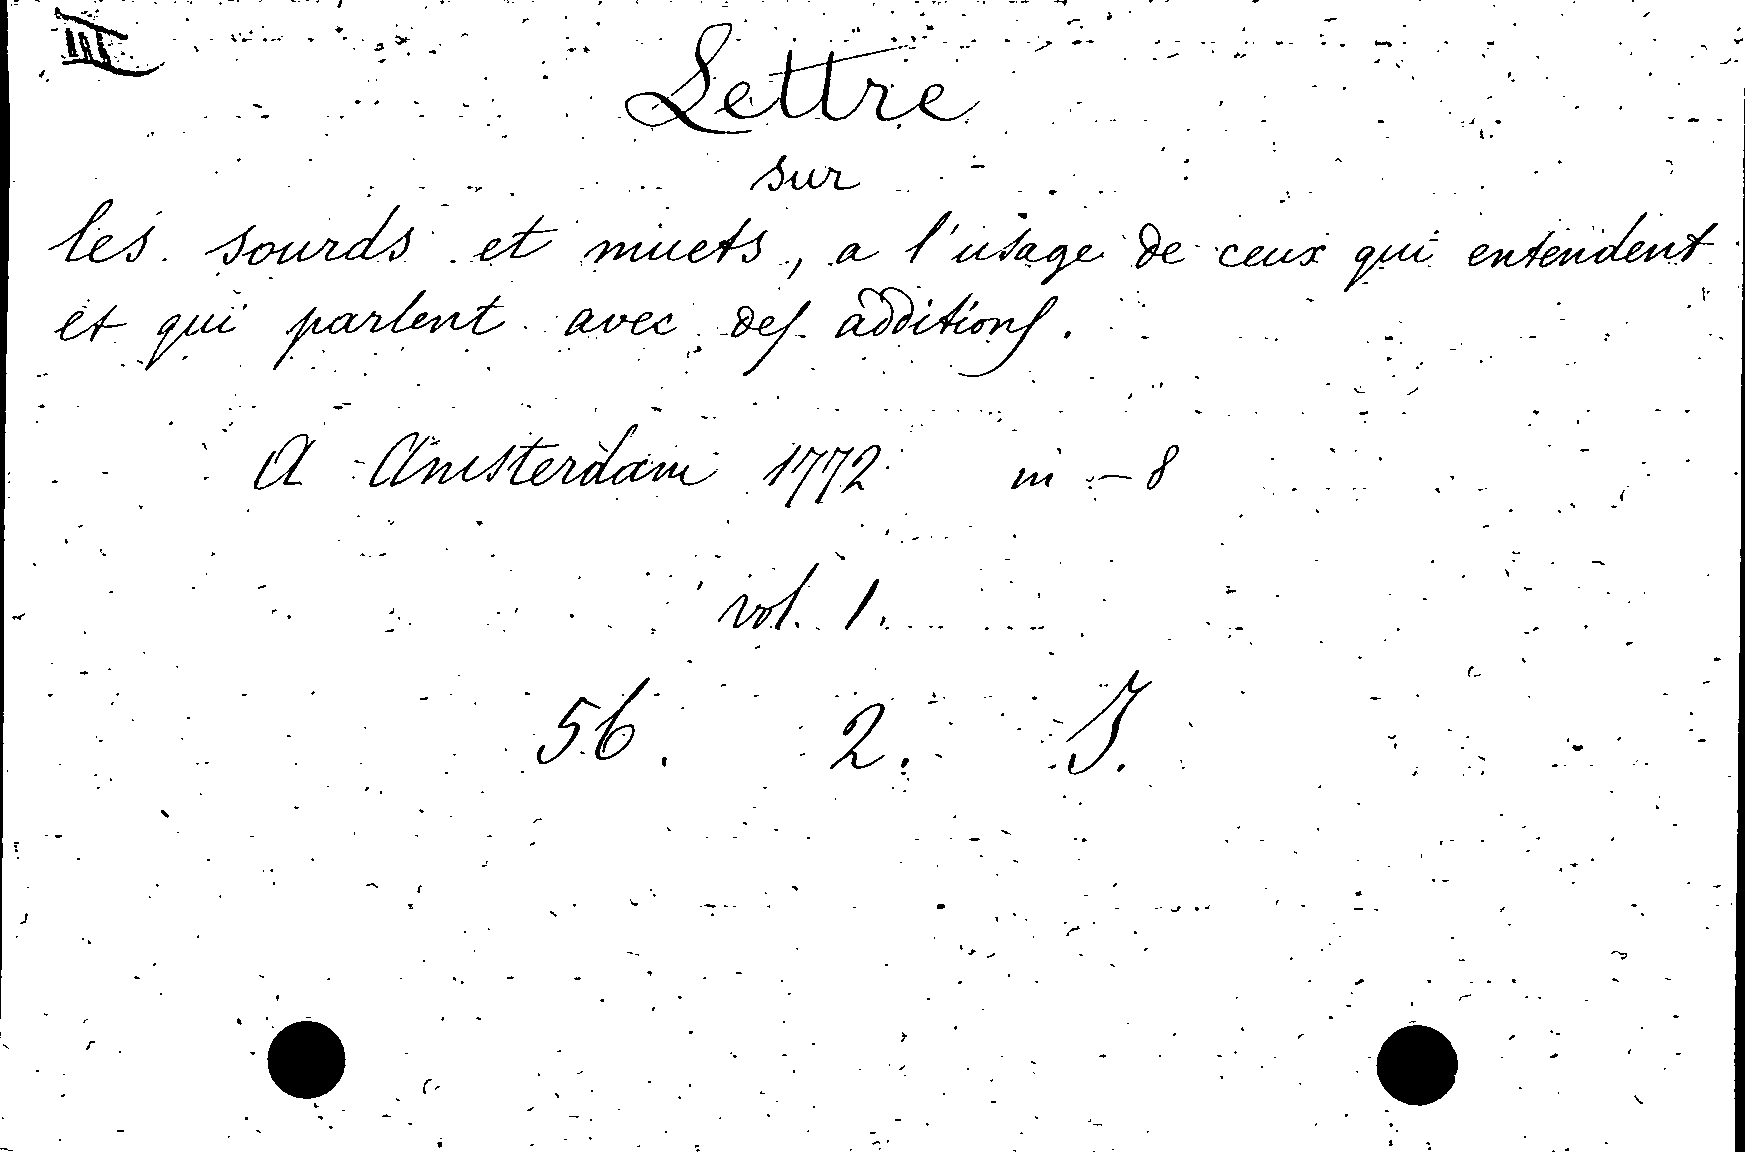 III
Lettre
sur
les sourds et muets, a l'usage de ceux qui entendent
et qui parlent avec des additions.
A Amsterdam 1772 in - 8
vol. 1.
56. 2. J.